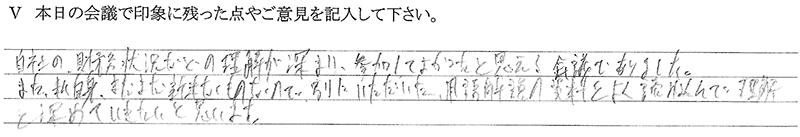 V 本日の会議で印象に残った点やご意見を記入して下さい。
自社の、財務状況などの理解が深まり、参加してよかったと思える会議でありました。
また、私自身、まだまだ新米なものなので、別にいただいた、用語解説の資料をよく読み込んで理解
を深めていきたいと思います。